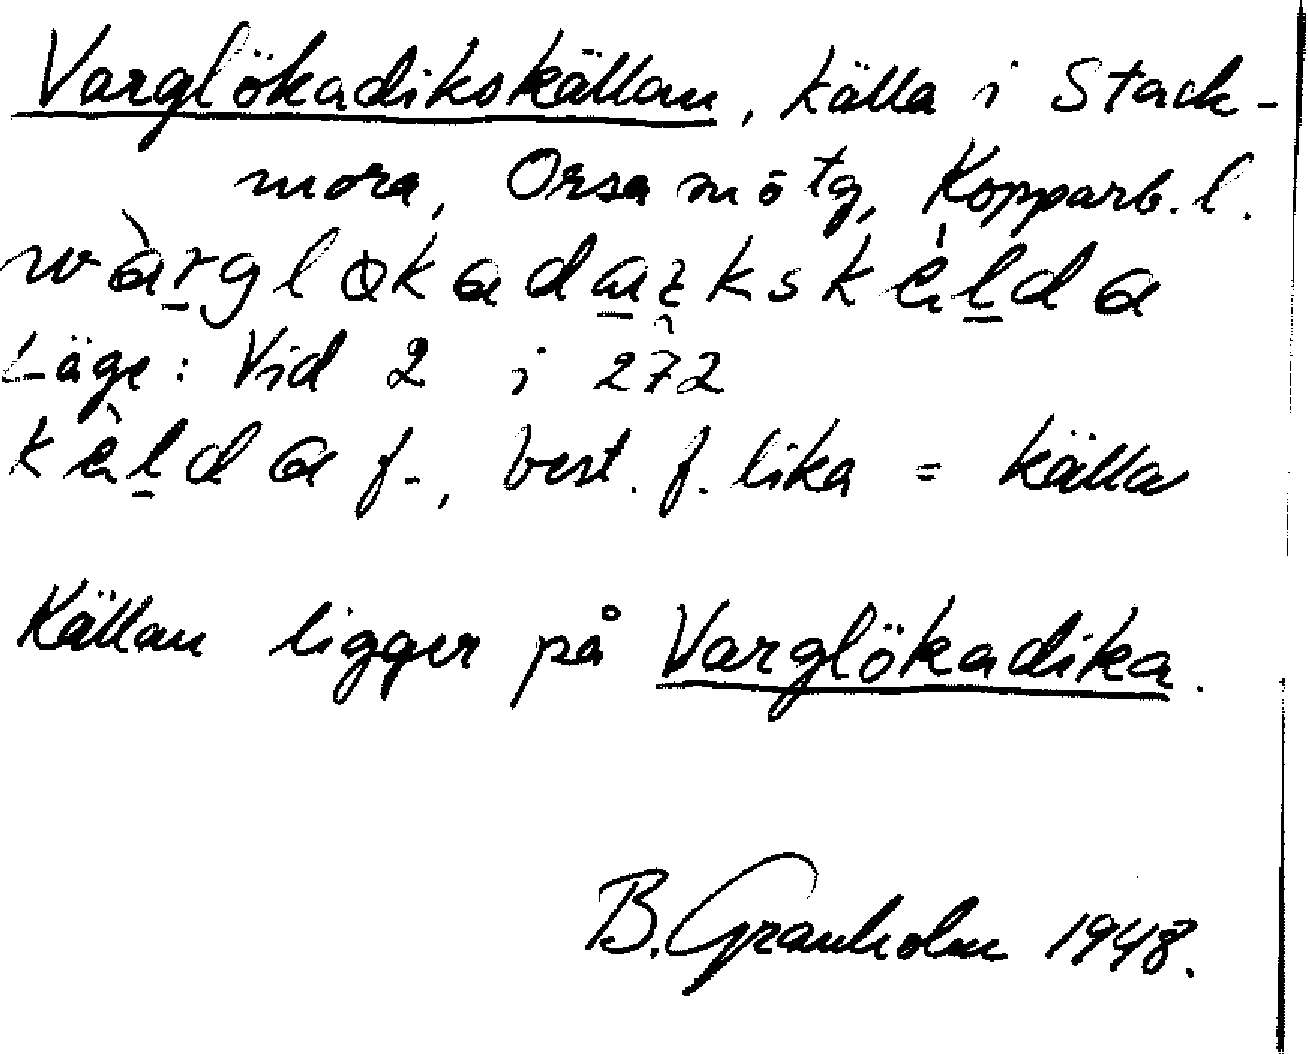 Varglökadikskällan, källa i Stack-
mora, Orsa m ö tg, Kopparb. l.
Läge: Vid 2 i 272
f., best. f. lika = källa
Källan ligger på Varglökadika.
B. Granholm 1948.